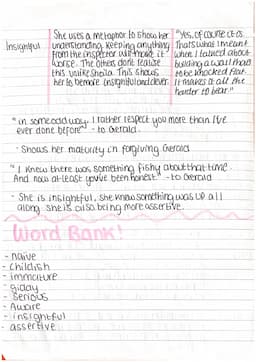 Insightful
She uses a metaphor to show her
understanding. Keeping anything
from the inspector will make it
worse. The others dont realise
this, unlike Sheila. This shows
her to be more insightful and clever.
"Yes, of course it is.
That's what I meant
when I talked about
building a wall that's
to be knocked flat.
It makes it all the
harder to bear."
"in some odd way, I rather respect you more than I've
ever done before" - to Gerald.
- Shows her maturity in forgiving Gerald
"I knew there was something fishy about that time.
And now at least you've been honest" - to Gerald
- She is insightful, she knew something was up all
along. She is also being more assertive.
Word Bank!
- naive
- childish
- immature
- giddy
- serious
- Aware
- insightful
- assertive